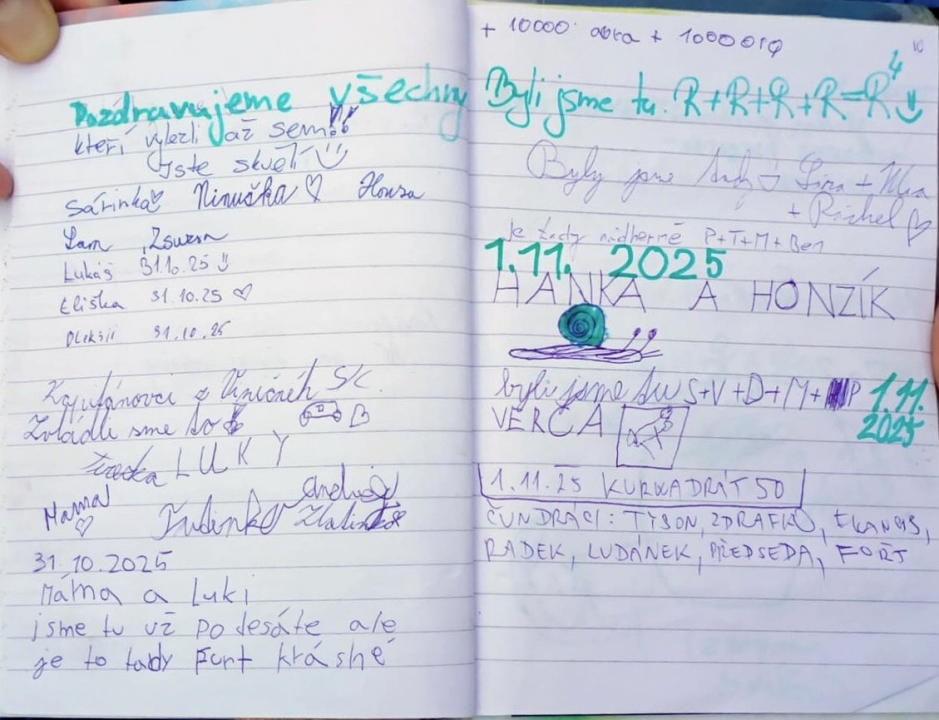 Pozdravujeme všechny
kteří vylezli až sem!!
Jste skvělí
Sárinka Ninuška Honza
Sam, Zsuzsa
Lukáš 31.10.25
Eliška 31.10.25
Oleksii 31.10.25
Zvládli sme to
LUKY
Mama
31.10.2025
Máma a Luki
jsme tu už po desáté ale
je to tady Furt krásné
+ 10000 aura + 1000
Byli jsme tu. R+R+R+R=R⁴
Byly jsme tady
+ Ráchel
Je tady nádherně P+T+M+Ben
1.11. 2025
HANKA A HONZÍK
byli jsme tu S+V+D+M+ P 1.11.
VERČA 2025
1.11.25 KURWADRÁT 50
ČUNDRÁCI: TYSON, ZDRAFKO,
RADEK, LUDÁNEK, PŘEDSEDA, FOŘT